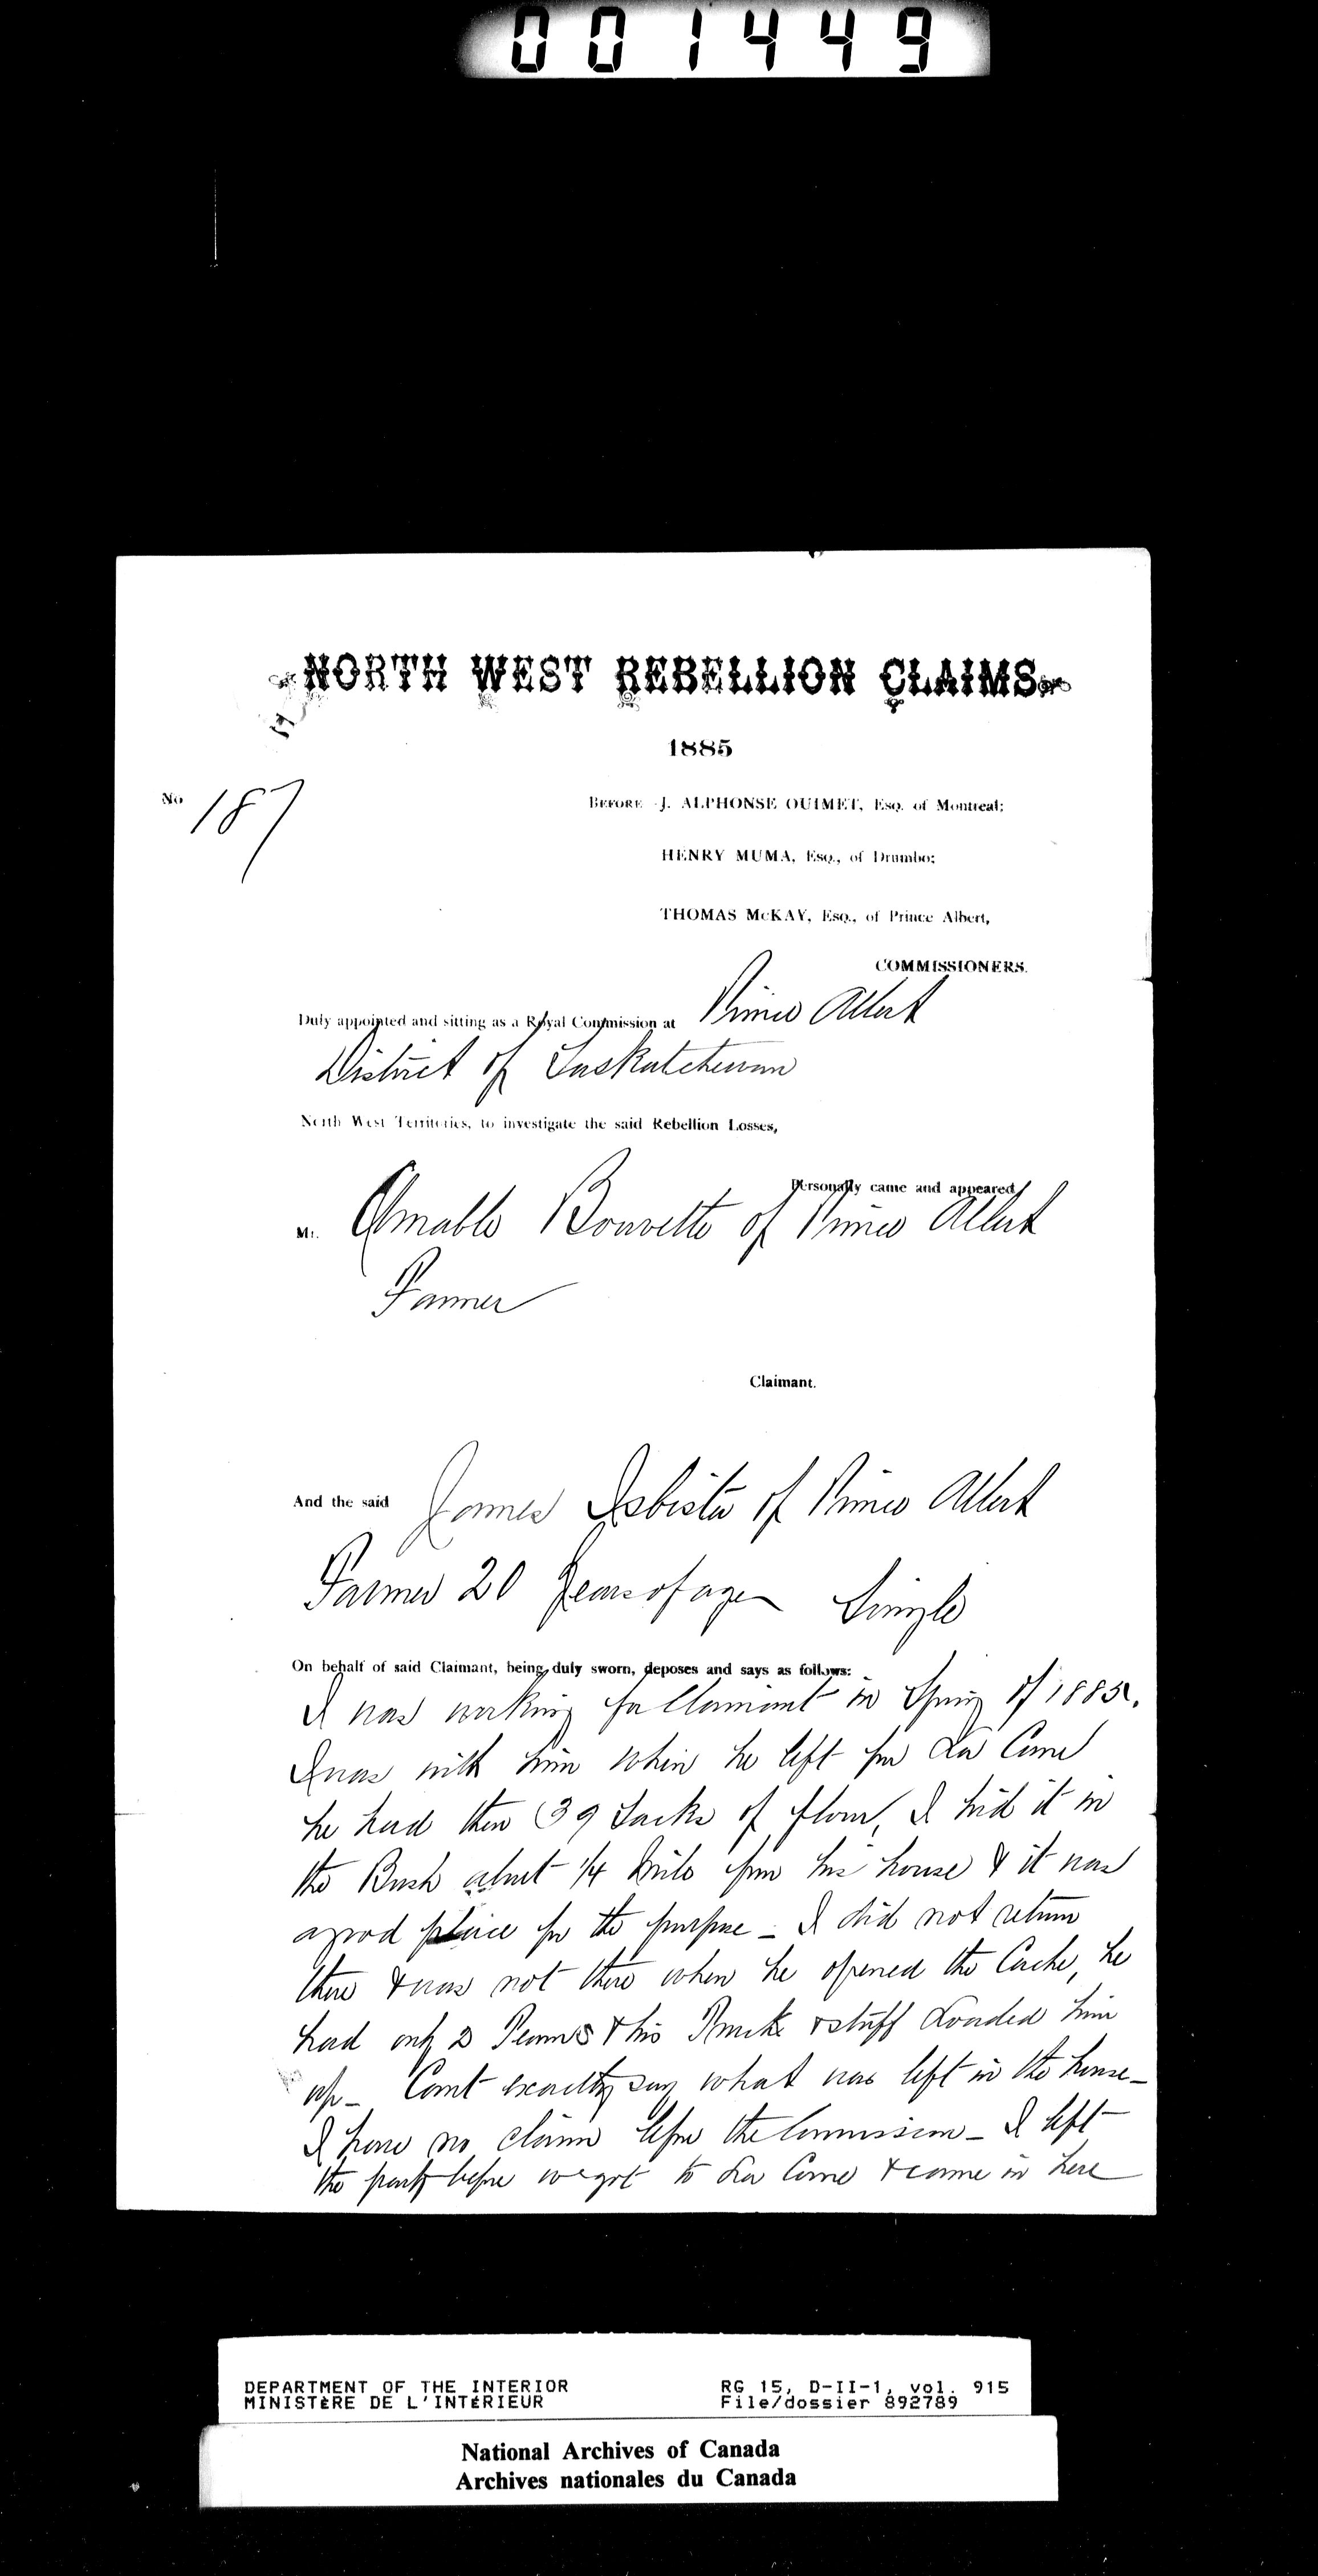 001449
NORTH WEST REBELLION CLAIMS.
1885
No 187
BEFORE J. ALPHONSE OUIMET, Esq. of Montreal;
HENRY MUMA, Esq., of Drumbo;
THOMAS McKAY, Esq., of Prince Albert,
COMMISSIONERS.
Duly appointed and sitting as a Royal Commission at Prince Albert
District of Saskatchewan
North West Territories, to investigate the said Rebellion Losses,
Personally came and appeared
Mr. Amable Bouvette of Prince Albert
Farmer
Claimant.
And the said James Isbister of Prince Albert
Farmer 20 Years of age Single
On behalf of said Claimant, being duly sworn, deposes and says as follows:
I was working for Claimant in Spring of 1885.
I was with him when he left for La Corne
he had then 39 Sacks of flour, I hid it in
the Bush about 1/4 Mile from his house & it was
a good place for the purpose - I did not return
there & was not there when he opened the Cache, he
had only 2 Teams & his & stuff Loaded him
up - Cant exactly say what was left in the house -
I have no claim before the Commission - I left
the party before we got to La Corne & came in here
DEPARTMENT OF THE INTERIOR
MINISTÈRE DE L'INTÉRIEUR
RG 15, D-II-1, vol. 915
File/dossier 892789
National Archives of Canada
Archives nationales du Canada